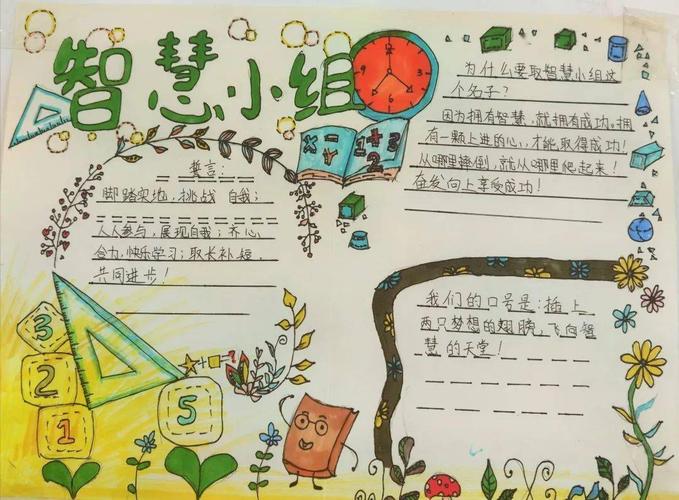 智慧小组
誓言:
脚踏实地,挑战 自我;
人人参与,展现自我;齐心
合力,快乐学习;取长补短,
共同进步!
为什么要取智慧小组这
个名子?
因为拥有智慧,就拥有成功。拥
有一颗上进的心,才能取得成功!
从哪里摔倒,就从哪里爬起来!
奋发向上享受成功!
我们的口号是:插上
两只梦想的翅膀,飞向智
慧的天堂!
3
2
1
5
+ = ?